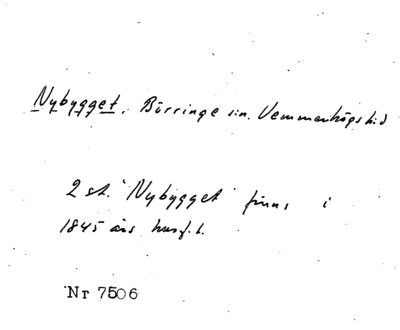 Nybygget, Börringe sn. Vemmenhögs hd
2 st. "Nybygget" finns i
1845 års husf.l.
Nr 7506